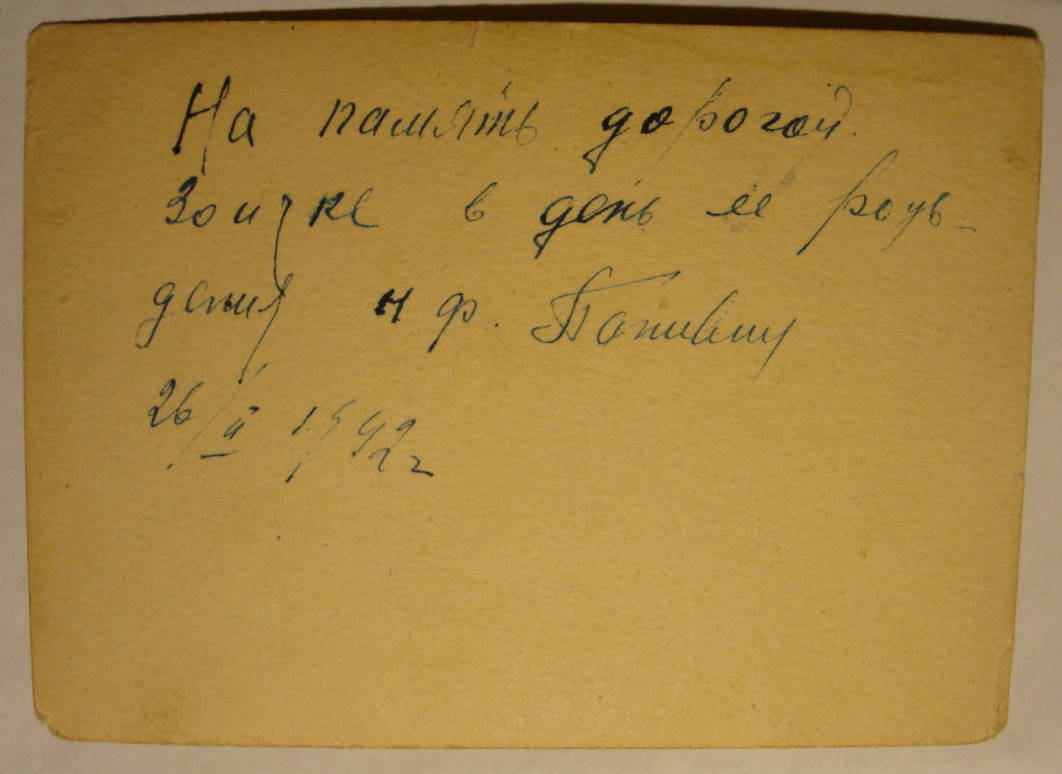 На память дорогой
Зоичке в день ее рожь-
дения н ф.
26/II 1942 г